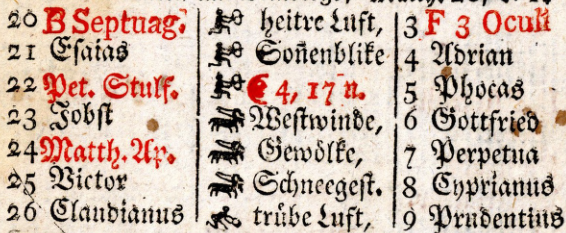 20 B Septuag. heitre Luft, 3 F 3 Oculi
21 Esaias Soñenblike 4 Adrian
22 Pet. Stulf. € 4, 17 n. 5 Phocas
23 Jobst Westwinde, 6 Gottfried
24 Matth. Ap. Gewölke, 7 Perpetua
25 Victor Schneegest. 8 Cyprianus
26 Claudianus trübe Luft, 9 Prudentius